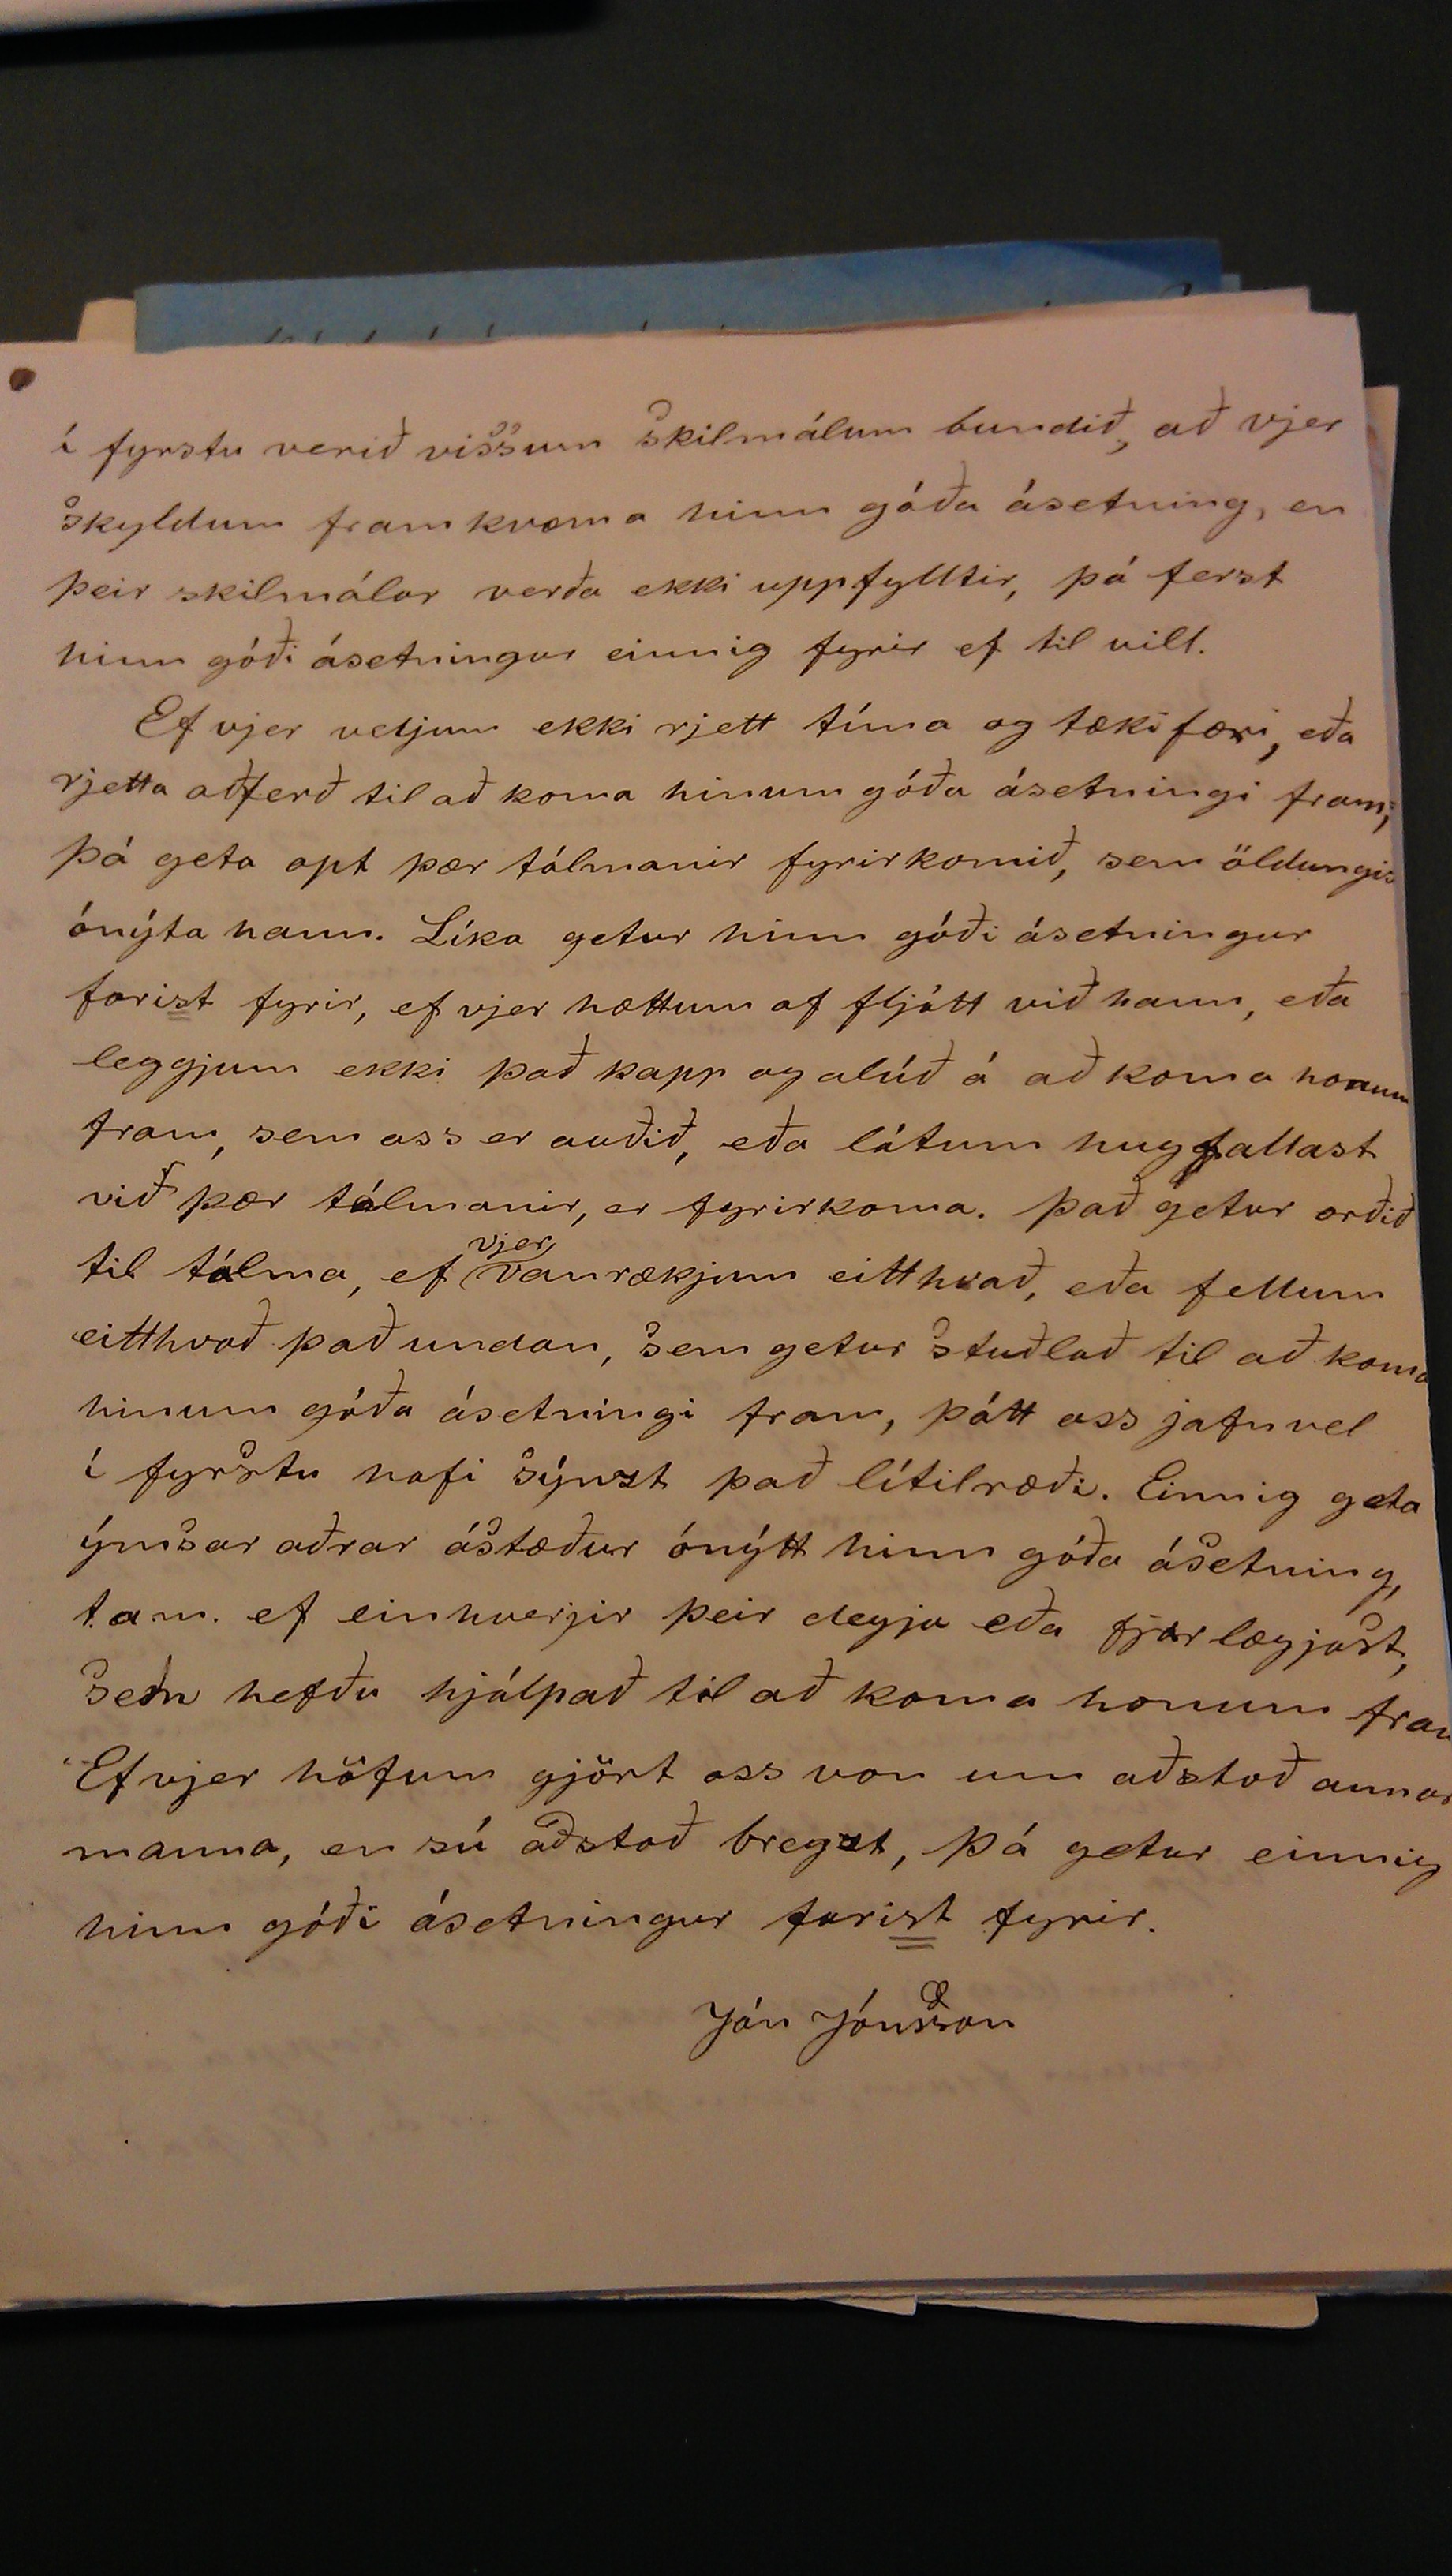 í fyrstu verið vissum skilmálum bundið, að vjer
skyldum framkvæma hinn góða ásetning, en
þeir skilmálar verða ekki uppfylltir, þá ferst
hinn góði ásetningur einnig fyrir ef til vill.
Ef vjer veljum ekki rjett tíma og tækifæri, eða
rjetta aðferð til að koma hinum góða ásetningi fram,
þá geta opt þær tálmanir fyrirkomið, sem öldungis
ónýta hann. Líka getur hinn góði ásetningur
farist fyrir, ef vjer hættum of fljótt við hann, eða
leggjum ekki það kapp og alúð á að koma honum
fram, sem oss er auðið, eða látum hugfallast
við þær tálmanir, er fyrirkoma. Það getur orðið
til tálma, ef vjer vanrækjum eitthvað, eða fellum
eitthvað það undan, sem getur stuðlað til að koma
hinum góða ásetningi fram, þótt oss jafnvel
í fyrstu hafi sýnzt það lítilræði. Einnig geta
ýmsar aðrar ástæður ónýtt hinn góða ásetning,
t.a m. ef einhverjir þeir deyja eða fjarlægjast,
sem hefðu hjálpað til að koma honum fram
Ef vjer höfum gjört oss von um aðstoð annar
manna, en sú aðstoð bregzt, þá getur einnig
hinn góði ásetningur farist fyrir.
Jón Jónsson